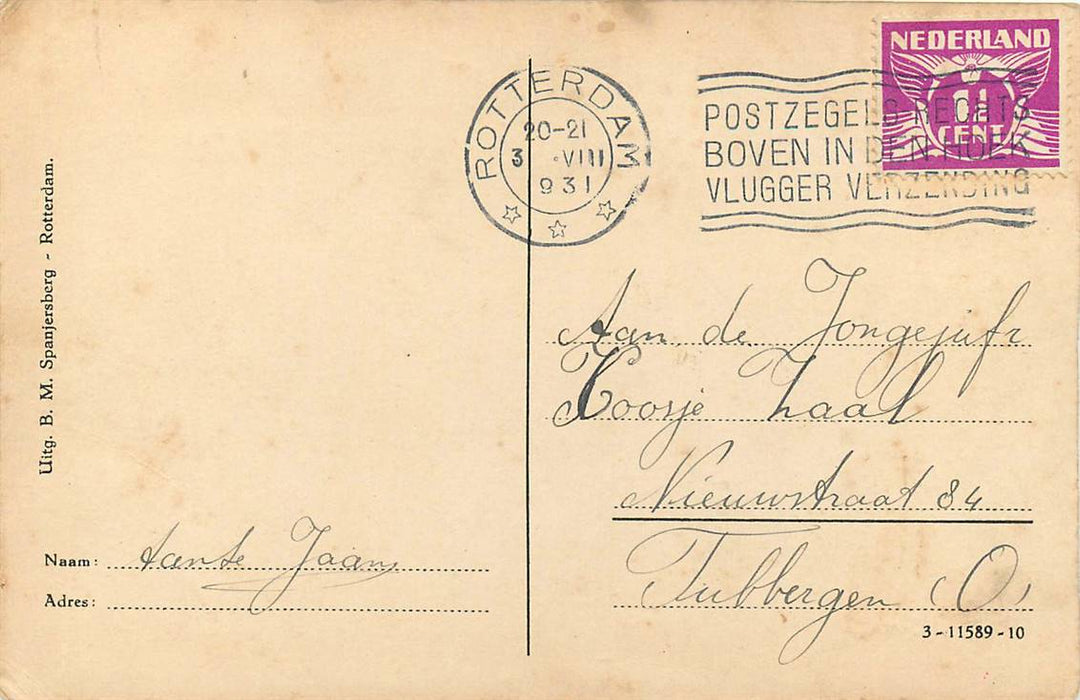 NEDERLAND
1½
CENT
ROTTERDAM
20-21
3 ·VIII
931
POSTZEGELS RECHTS
BOVEN IN DEN HOEK
VLUGGER VERZENDING
Uitg. B. M. Spanjersberg - Rotterdam.
Aan de Jongejufr
Koosje Zaal
Nieuwstraat 84
Tubbergen (O)
Naam: tante Jaan
Adres:
3-11589-10